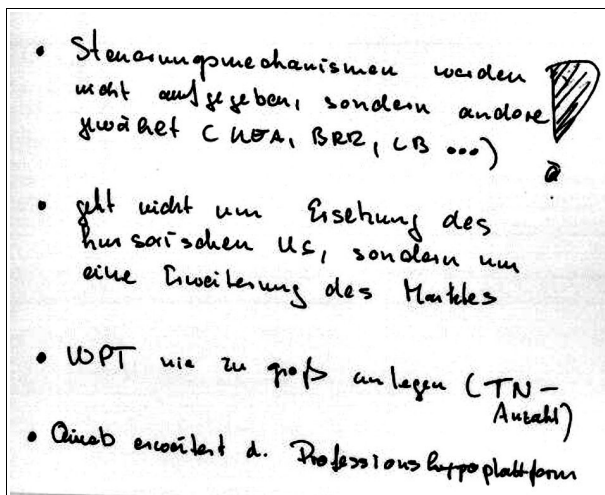 • Steuerungsmechanismen werden
nicht aufgegeben, sondern andere
gewählt ( KEA, BRR, LB ...)
• geht nicht um Ersetzung des
kursorischen US, sondern um
eine Erweiterung des Marktes
• WPT nie zu groß anlegen (TN-
Anzahl)
• erweitert d.